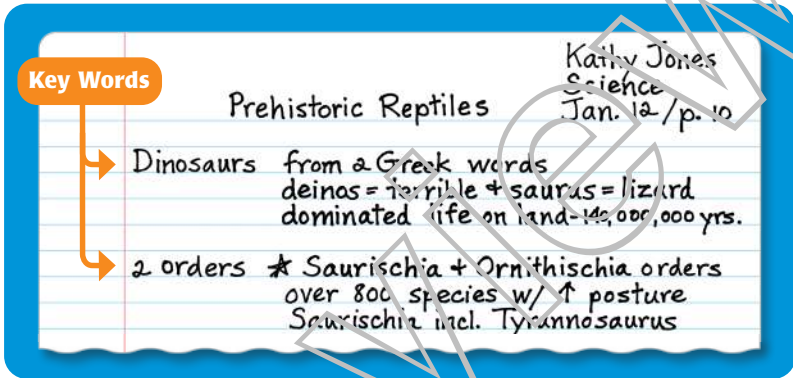 Kathy Jones
Science
Key Words
Prehistoric Reptiles Jan. 12/p. 10
Dinosaurs from 2 Greek words
deinos = terrible + saurus = lizard
dominated life on land-140,000,000 yrs.
2 orders ★ Saurischia + Ornithischia orders
over 800 species w/ ↑ posture
Saurischia incl. Tyrannosaurus